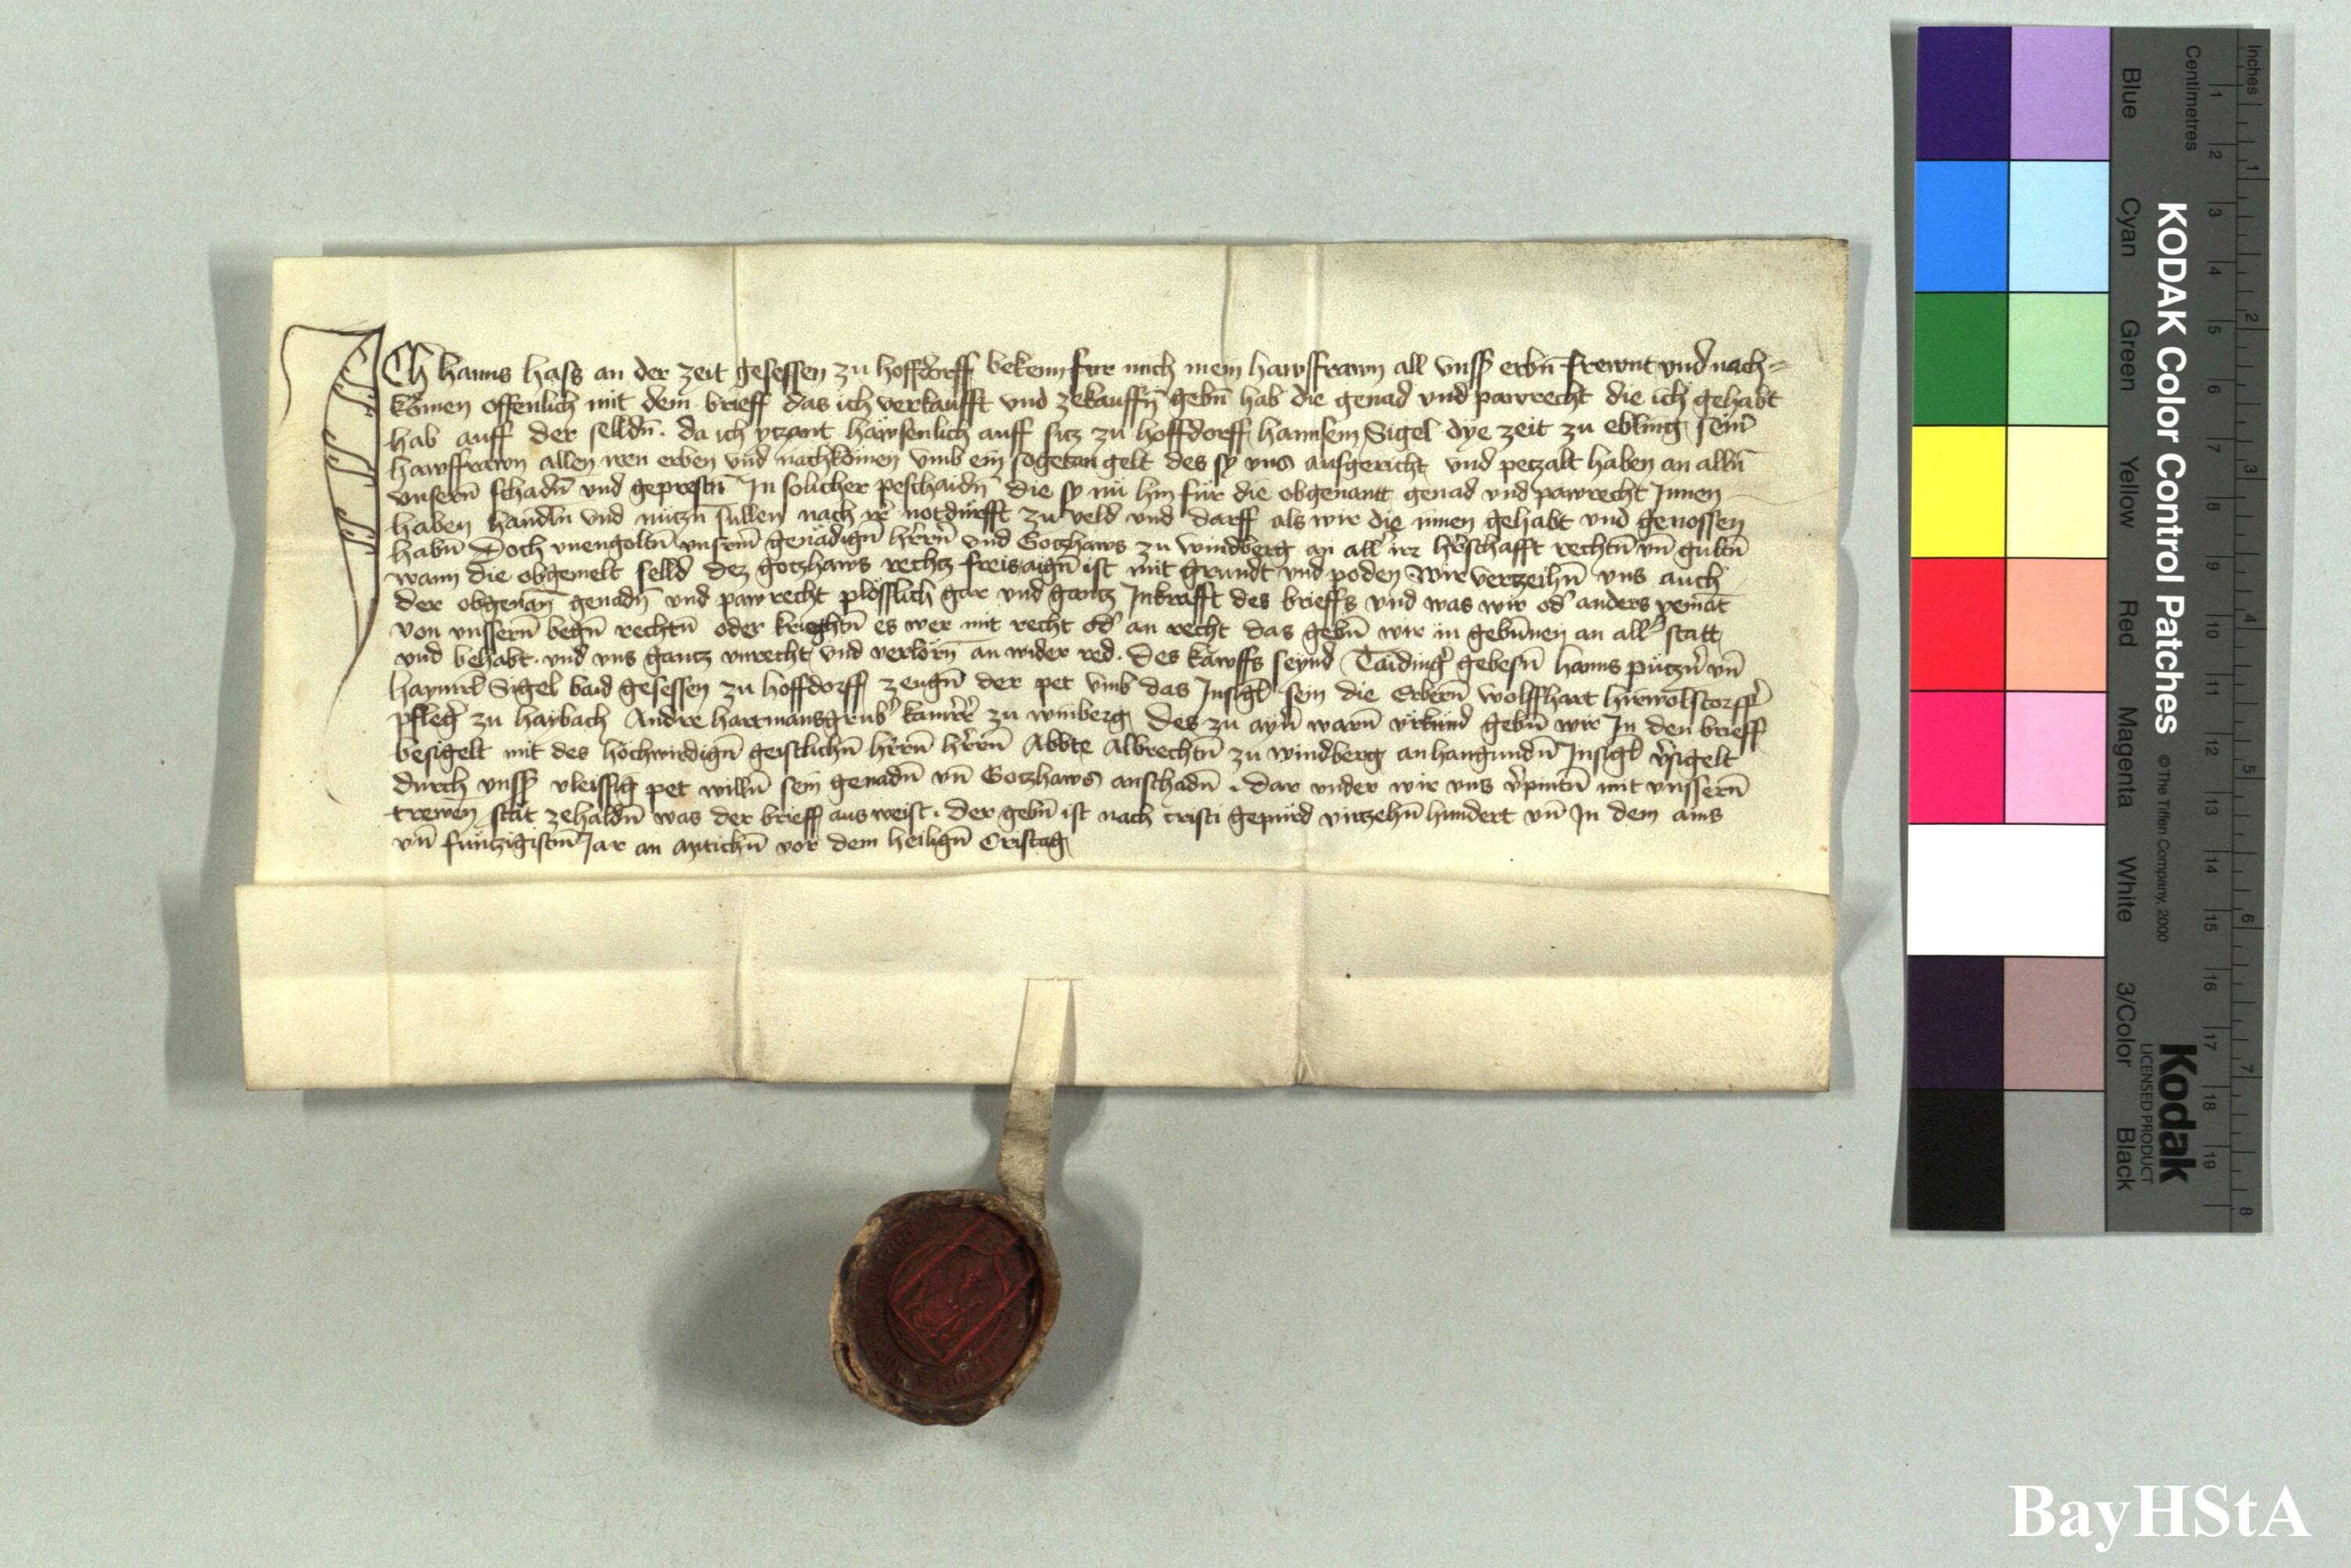 Ich hanns hass an der zeit gesessen zu hoffdorff bekenn fur mich mein hawsfrawn all vnss erbn̄ frewnt vnd nach=
komen offenlich mit dem brieff das ich verkaufft vnd zekauffn̄ gebn̄ hab die genad vnd pawrecht die ich gehabt
hab auff der selldn̄. da ich yczant hawsenlich auff sicz zu hoffdorff hannsem Sigel dye zeit zu ebling sein̄
hawsfrawn allen iren erben vnd nachkōmen vmb ein sogetan gelt des sy vns ausgericht vnd peczalt haben an alln̄
vnsern̄ schadn̄ vnd geprestn̄ In solicher peschaidn̄ die sy nu hin für die obgenantt genad vnd pawrecht Innen
haben handln̄ vnd nuczn̄ sullen nach ir notdürfft zu veld vnd darff als wir die innen gehabt vnd genossen
habn̄ Doch vnengoltn̄ vnserm̄ genädign̄ hern̄ vnd Goczhaws zu windberg an all irr herschafft rechtn̄ vn̄ gultn̄
wann die obgemelt selld dez goczhaws rechcz freis aign̄ ist mit grundt vnd poden Wir verzeihn̄ vns auch
der obgenan̄ genadn̄ vnd pawrecht plösslich gar vnd gantz Inkrafft des brieffs vnd was wir od anders yemāt
von vnssern̄ begn̄ rechtn̄ oder kriegthn̄ es wer mit recht od an recht das gebn̄ wir in gebunnen an all statt
vnd behabt. vnd vns gantz vnrecht vnd verlorn̄ an wider red. Des kawffs seynd Taiding gebesn̄ hanns pützn̄ vn̄
haynrel Sigel baid gesessen zu hoffdorff zeugn̄ der pet vmb das Insigl sein die Erbern̄ wolffhart hirwolstorff
pfleg zu haibach Andre hartmansgrub kamrer zu winberg Des zu ayn̄ warn̄ vrkund gebn̄ wir In den brieff
besigelt mit des hochwirdign̄ geistlichn̄ hern̄ hern̄ Abbte Albrechtn̄ zu windberg anhangundn̄ Insigl v̄sigelt
durch vnss vleissig pet willn̄ sein genadn̄ vn̄ Goczhaws anschadn̄. dar vnder wir vns v̄pintn̄ mit vnssern̄
trewen stät zehaldn̄ was der brieff aus weist. Der gebn̄ ist nach cristi gepurd virczehn̄ hundert vn̄ In dem ains
vn̄ funczigistn̄ Jar an mitichn̄ vor dem heilign̄ Cristag
Inches
Centimetres
KODAK Color Control Patches
© The Tiffen Company, 2000
Kodak
LICENSED PRODUCT
Blue Cyan Green Yellow Red Magenta White 3/Color Black
1 2 3 4 5 6 7 8 9 10 11 12 13 14 15 16 17 18 19
1 2 3 4 5 6 7 8
BayHStA